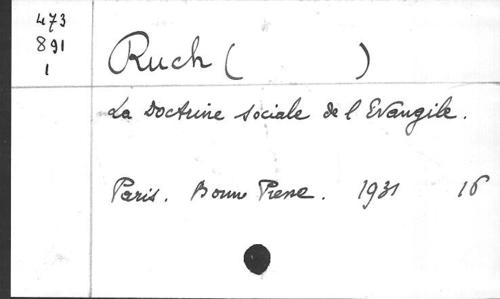 473
891
1
Ruch (          )
La Doctrine sociale de l'Evangile.
Paris. Bonne Presse. 1931 16